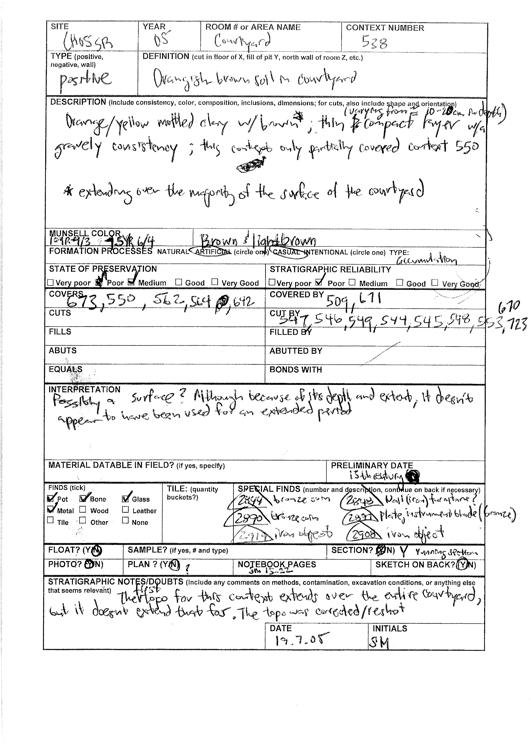 SITE YEAR ROOM # or AREA NAME CONTEXT NUMBER
CH05SB 05 Courtyard 538
TYPE (positive, negative, wall) DEFINITION (cut in floor of X, fill of pit Y, north wall of room Z, etc.)
positive Orangish brown soil in courtyard
DESCRIPTION (Include consistency, color, composition, inclusions, dimensions; for cuts, also include shape and orientation)
(varying from ≈ 10-20cm in depth)
Orange/yellow mottled clay w/ brown*; thin & compact layer w/a
gravely consistency; this context only partially covered context 550
* extending over the majority of the surface of the courtyard
MUNSELL COLOR
10YR 4/3 7.5YR 6/4 Brown & light brown
FORMATION PROCESSES NATURAL ARTIFICIAL (circle one) CASUAL INTENTIONAL (circle one) TYPE:
accumulation
STATE OF PRESERVATION STRATIGRAPHIC RELIABILITY
Very poor Poor Medium Good Very Good Very poor Poor Medium Good Very Good
COVERS COVERED BY
673, 550, 562, 564, 642 509, 671
670
CUTS CUT BY
547, 546, 549, 544, 545, 548, 553, 723
FILLS FILLED BY
ABUTS ABUTTED BY
EQUALS BONDS WITH
INTERPRETATION
Possibly a surface? Although because of its depth and extent, it doesn't
appear to have been used for an extended period
MATERIAL DATABLE IN FIELD? (if yes, specify) PRELIMINARY DATE
13th century
FINDS (tick) TILE: (quantity buckets?) SPECIAL FINDS (number and description, continue on back if necessary)
Pot Bone Glass
Metal Wood Leather
Tile Other None
2844 bronze coin Nail (iron) furniture?
2890 bronze coin Plate, instrument blade (bronze)
iron object 2908 iron object
FLOAT? (Y/N) SAMPLE? (if yes, # and type) SECTION? (Y/N) Y running section
PHOTO? (Y/N) PLAN? (Y/N) ? NOTEBOOK PAGES SKETCH ON BACK? (Y/N)
SM 15-22
STRATIGRAPHIC NOTES/DOUBTS (Include any comments on methods, contamination, excavation conditions, or anything else
that seems relevant) first
The topo for this context extends over the entire courtyard,
but it doesn't extend that far. The topo was corrected/reshot
DATE INITIALS
19.7.05 SM